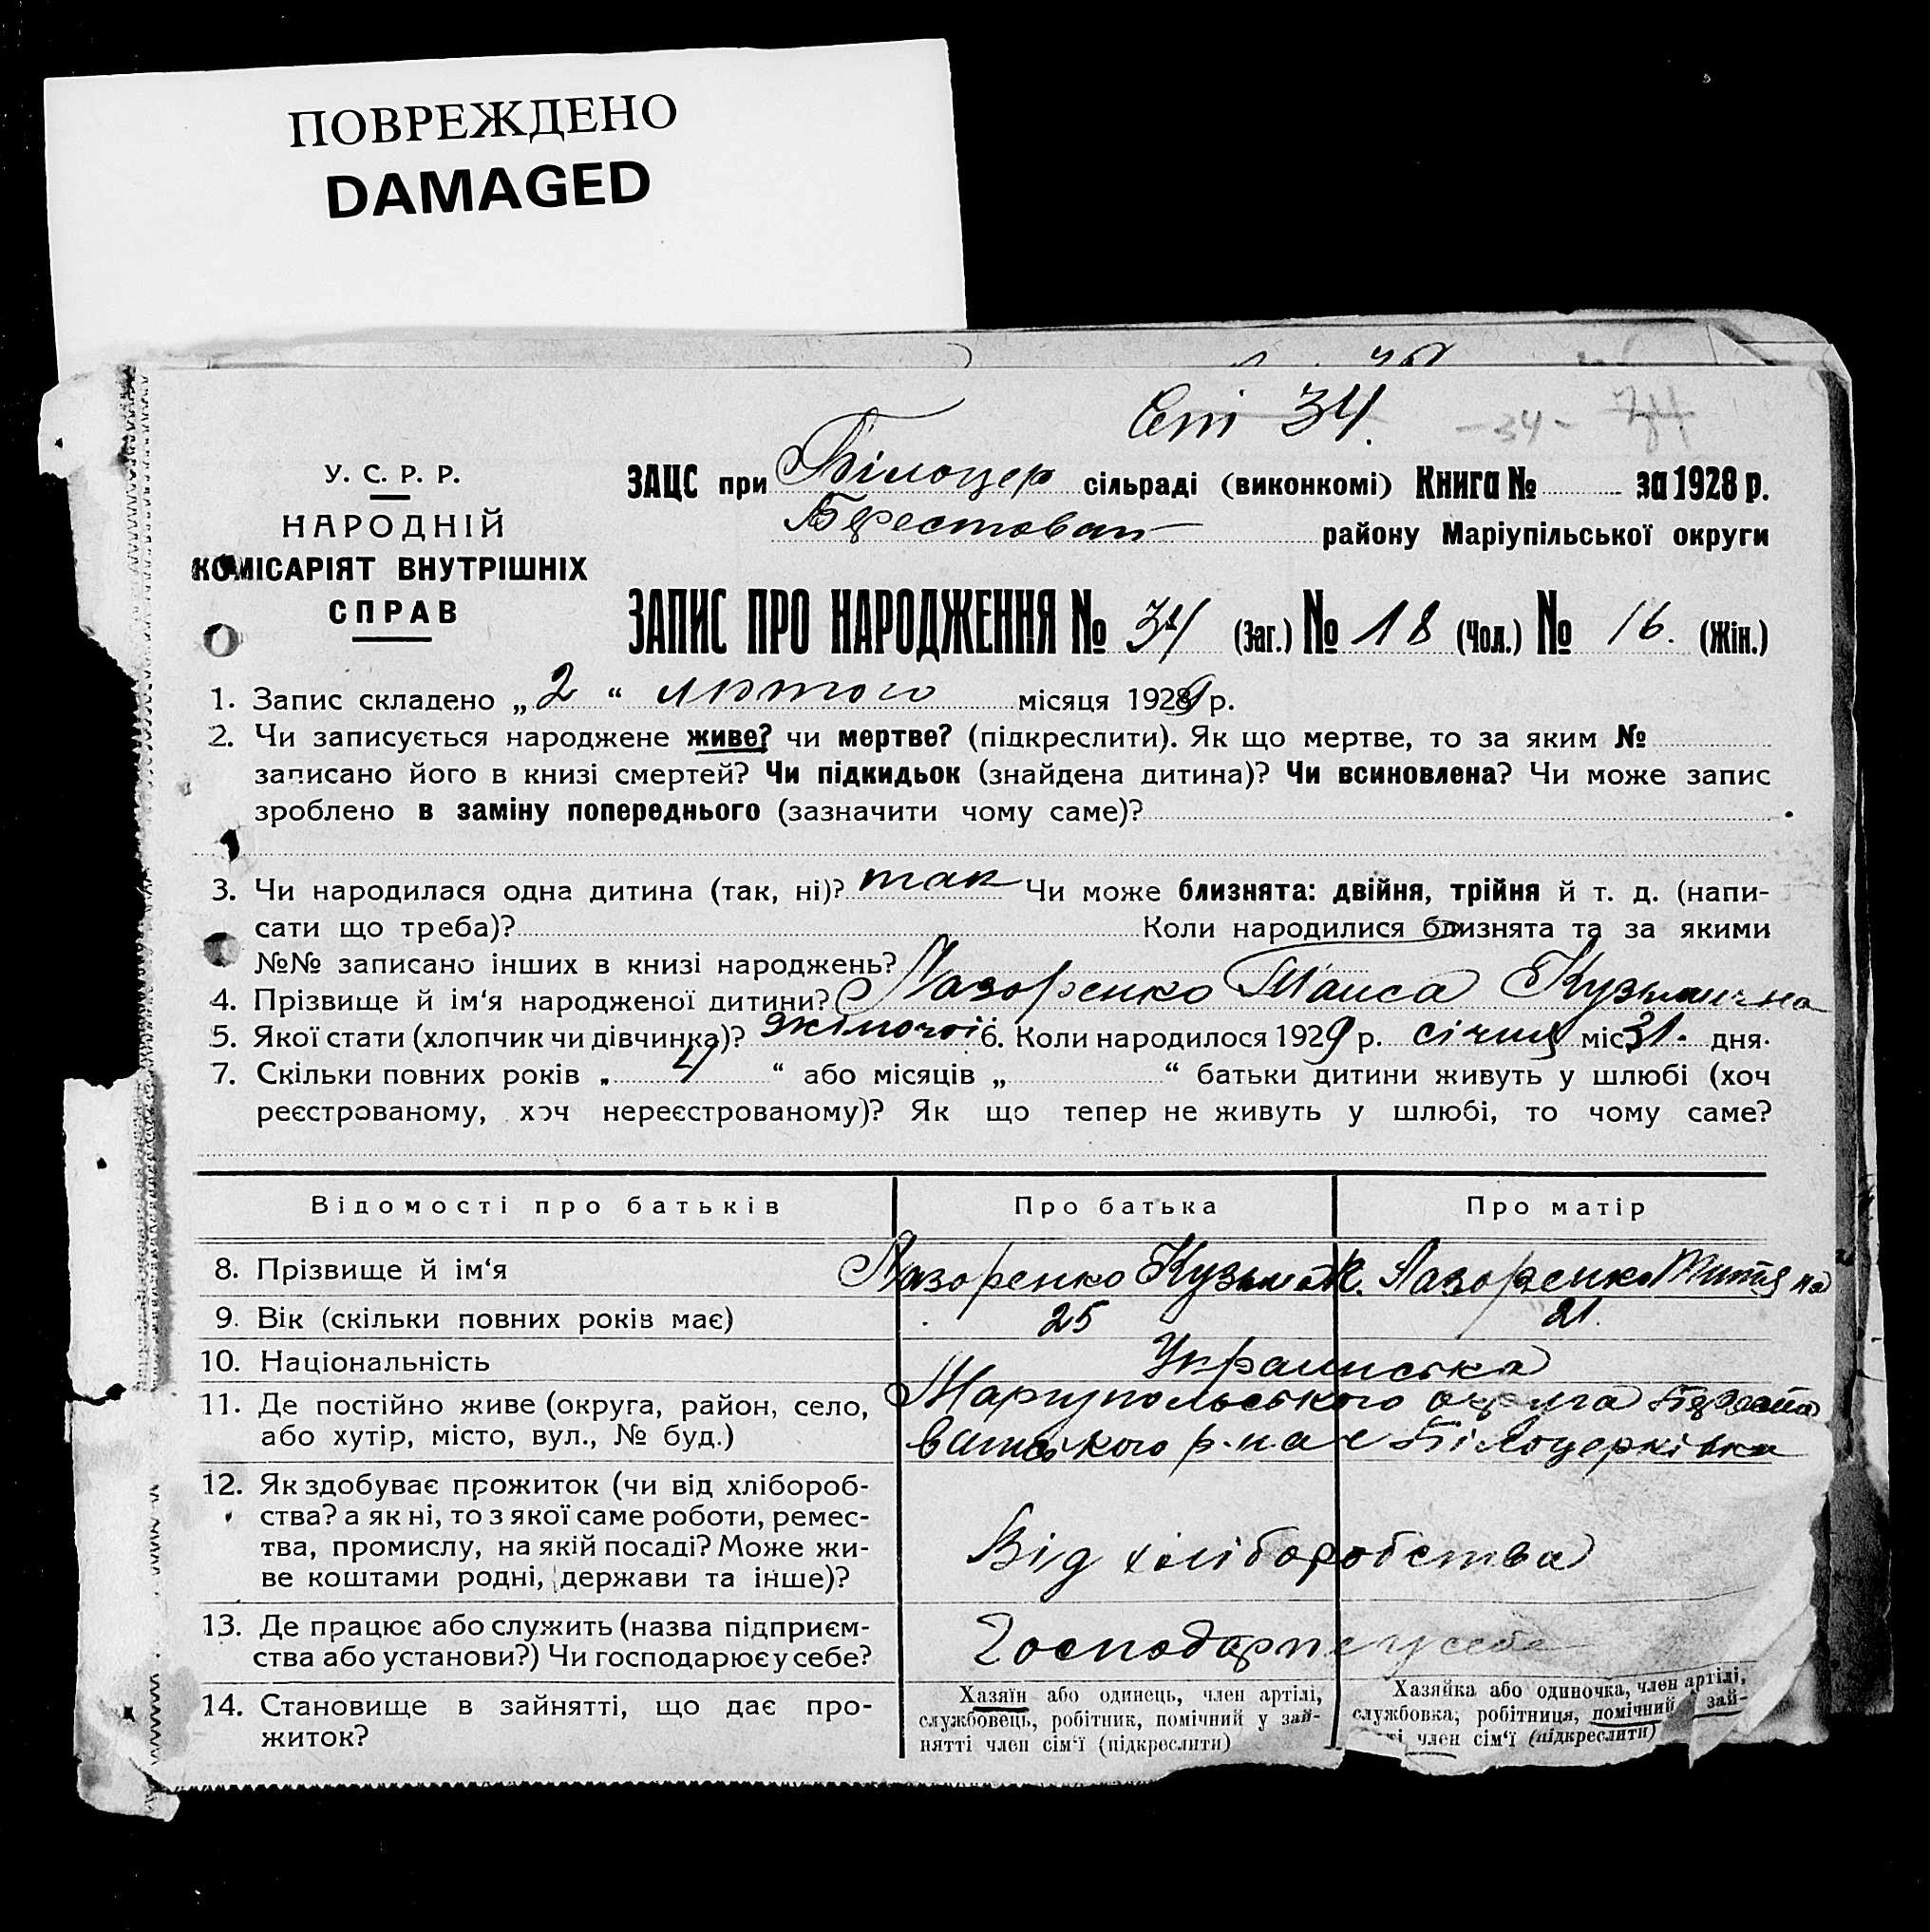 ПОВРЕЖДЕНО
DAMAGED
Ст 34.
-34-
У. С. Р. Р.
НАРОДНІЙ
КОМІСАРІЯТ ВНУТРІШНІХ
СПРАВ
ЗАЦС при Білоцер сільраді (виконкомі) Книга № за 1928 р.
Берестоват району Маріупільської округи
ЗАПИС ПРО НАРОДЖЕННЯ № 34 (Заг.) № 18 (Чол.) № 16. (Жін.)
1. Запис складено „ 2 “ лютого місяця 1929 р.
2. Чи записується народжене живе? чи мертве? (підкреслити). Як що мертве, то за яким №
записано його в книзі смертей? Чи підкидьок (знайдена дитина)? Чи всиновлена? Чи може запис
зроблено в заміну попереднього (зазначити чому саме)?
3. Чи народилася одна дитина (так, ні)? так Чи може близнята: двійня, трійня й т. д. (напи-
сати що треба)? Коли народилися близнята та за якими
№№ записано інших в книзі народжень?
4. Прізвище й ім‘я народженої дитини? Лазоренко Таиса Кузьминична
5. Якої стати (хлопчик чи дівчинка)? жіночої 6. Коли народилося 1929 р. січня міс. 31. дня.
7. Скільки повних років „ 4 “ або місяців „ “ батьки дитини живуть у шлюбі (хоч
реєстрованому, хоч нереєстрованому)? Як що тепер не живуть у шлюбі, то чому саме?
Відомості про батьків Про батька Про матір
8. Прізвище й ім‘я Лазоренко Кузьма Лазоренко
9. Вік (скільки повних років має) 25 21.
10. Національність Украинська
11. Де постійно живе (округа, район, село, Мариупольського округа Бересто
або хутір, місто, вул., № буд.) ватського р-на с Білоцерківка
12. Як здобуває прожиток (чи від хлібороб-
ства? а як ні, то з якої саме роботи, ремес-
тва, промислу, на якій посаді? Може жи-
ве коштами родні, держави та інше)?
Від хліборобства
13. Де працює або служить (назва підприєм-
ства або установи?) Чи господарює у себе?
Господарпе у себе
14. Становище в зайнятті, що дає про-
житок?
Хазяїн або одинець, член артілі,
службовець, робітник, помічний у зай-
нятті член сім‘ї (підкреслити)
Хазяйка або одиночка, член артілі,
службовка, робітниця, помічний у зай-
ті член сім‘ї (підкреслити)